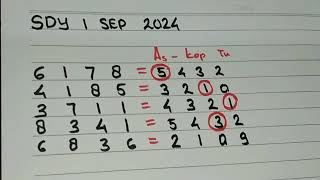 SDY 1 SEP 2024
As - kop Tu
6 1 7 8 = 5 4 3 2
4 1 8 5 = 3 2 1 0
3 7 1 1 = 4 3 2 1
8 3 4 1 = 5 4 3 2
6 8 3 6 = 2 1 0 9